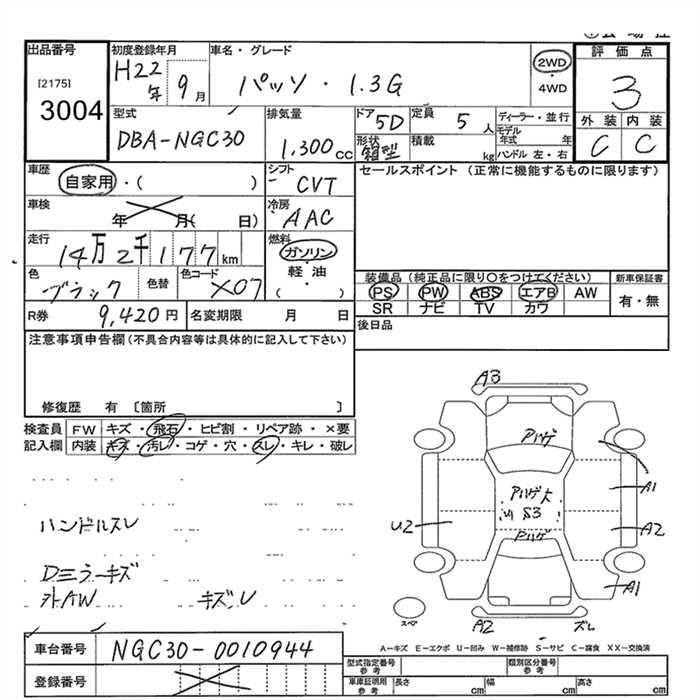 出品番号 初度登録年月 車名・グレード 2WD 評価点
[2175] H22年 9月 パッソ・1.3G ・4WD 3
3004
型式 排気量 ドア 定員 ディーラー・並行 外装 内装
DBA-NGC30 1,300cc 5D 5人 モデル年式 年 C C
形状 箱型 積載 kg ハンドル 左・右
車歴 シフト セールスポイント (正常に機能するものに限ります)
自家用・( ) CVT
車検 冷房
年 月( 日) AAC
走行 燃料
14万2千177km ガソリン
色 色替 色コード 軽・油
ブラック X07 ( )
装備品 (純正品に限り○をつけてください) 新車保証書
PS PW ABS エアB AW 有・無
SR ナビ TV カワ
R券 9,420円 名変期限 月 日
後日品
注意事項申告欄(不具合内容等は具体的に記入して下さい)
修復歴 有 〔箇所 〕
検査員 FW キズ・飛石・ヒビ割・リペア跡・×要
記入欄 内装 キズ・汚レ・コゲ・穴・スレ・キレ・破レ
A3
アハゲ
A1
アハゲ大
S3
U2 A2
アハゲ
A1
スペア
A2 スレ
ハンドルスレ
Dミラーキズ
外AW キズレ
A-キズ E-エクボ U-凹み W-補修跡 S-サビ C-腐食 XX-交換済
車台番号 NGC30-0010944
登録番号
型式指定番号 参考 類別区分番号 参考
車庫証明用 参考 長さ cm 幅 cm 高さ cm